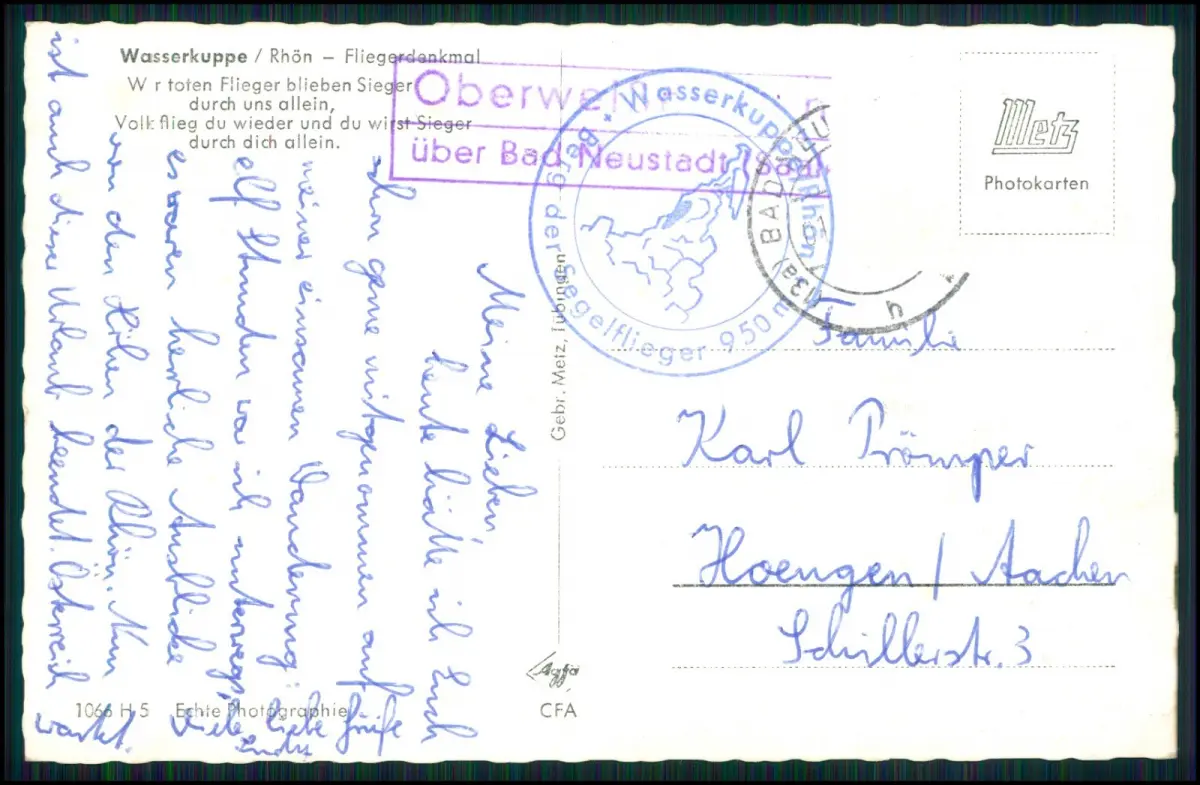 Wasserkuppe / Rhön – Fliegerdenkmal
W r toten Flieger blieben Sieger
durch uns allein,
Volk flieg du wieder und du wirst Sieger
durch dich allein.
Oberwei
über Bad Neustadt (Saal
Wasserkuppe/Rhön · 950 m
Berg der Segelflieger
(13a) BAD
Metz
Photokarten
Gebr. Metz, Tübingen
Meine Lieben,
heute hätte ich Euch
schon gerne mitgenommen auf
meiner einsamen Wanderung
elf Stunden war ich unterwegs,
es waren herrliche Ausblicke
von den Höhen der Rhön. Nun
ist auch dieser Urlaub beendet. Österreich
wartet.
Viele liebe Grüße
Familie
Karl Prömper
Hoengen / Aachen
Schillerstr. 3
1066 H 5 Echte Photographie
Agfa
CFA